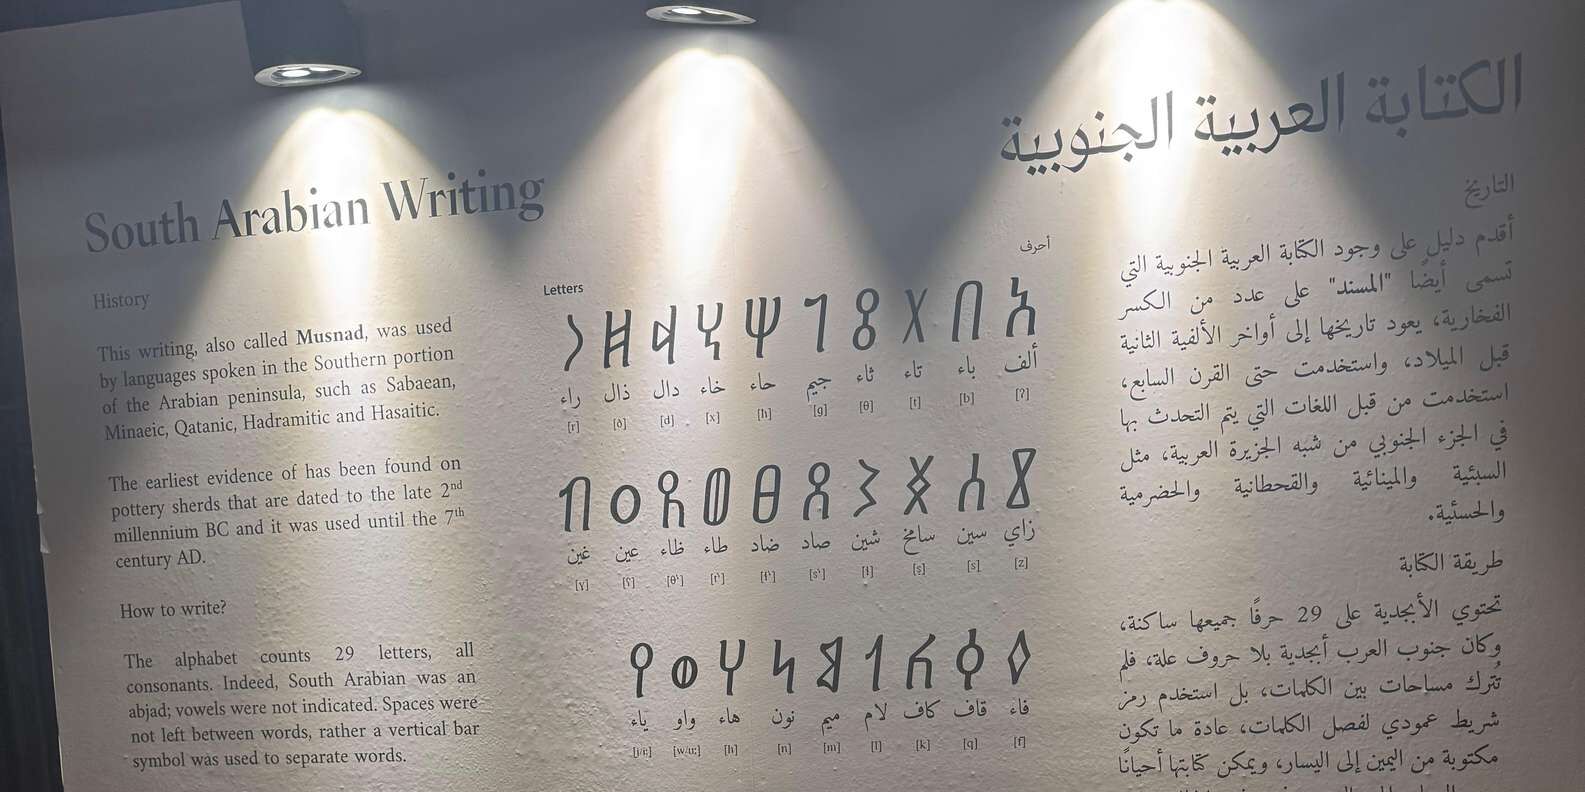 South Arabian Writing
History
This writing, also called Musnad, was used
by languages spoken in the Southern portion
of the Arabian peninsula, such as Sabaean,
Minaeic, Qatanic, Hadramitic and Hasaitic.
The earliest evidence of has been found on
pottery sherds that are dated to the late 2nd
millennium BC and it was used until the 7th
century AD.
How to write?
The alphabet counts 29 letters, all
consonants. Indeed, South Arabian was an
abjad; vowels were not indicated. Spaces were
not left between words, rather a vertical bar
symbol was used to separate words.
Letters
أحرف
𐩱 𐩨 𐩩 𐩻 𐩴 𐩢 𐩭 𐩵 𐩹 𐩧
ألف باء تاء ثاء جيم حاء خاء دال ذال راء
[r] [ð] [d] [x] [h] [g] [θ] [t] [b] [ʔ]
𐩸 𐩪 𐩯 𐩦 𐩮 𐩳 𐩷 𐩼 𐩲 𐩶
زاي سين سامخ شين صاد ضاد طاء ظاء عين غين
[ɣ] [ʕ] [θˤ] [tˤ] [sˤ] [ɬ] [s] [z]
𐩰 𐩤 𐩫 𐩡 𐩣 𐩬 𐩠 𐩥 𐩺
فاء قاف كاف لام ميم نون هاء واو ياء
[j/iː] [w/uː] [h] [n] [m] [l] [k] [q] [f]
الكتابة العربية الجنوبية
التاريخ
أقدم دليل على وجود الكتابة العربية الجنوبية التي
تسمى أيضًا "المسند" على عدد من الكسر
الفخارية، يعود تاريخها إلى أواخر الألفية الثانية
قبل الميلاد، واستخدمت حتى القرن السابع،
استخدمت من قبل اللغات التي يتم التحدث بها
في الجزء الجنوبي من شبه الجزيرة العربية، مثل
السبئية والمينائية والقحطانية والحضرمية
والحسئية.
طريقة الكتابة
تحتوي الأبجدية على 29 حرفًا جميعها ساكنة،
وكان جنوب العرب أبجدية بلا حروف علة، فلم
تُترك مساحات بين الكلمات، بل استخدم رمز
شريط عمودي لفصل الكلمات، عادة ما تكون
مكتوبة من اليمين إلى اليسار، ويمكن كتابتها أحيانًا